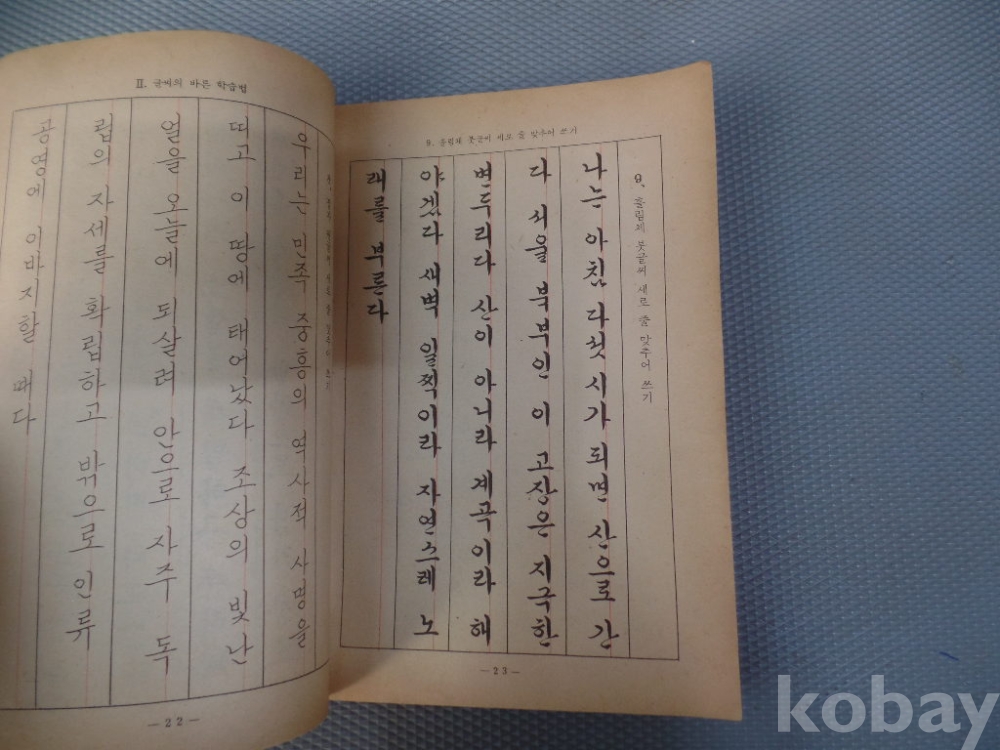 II. 글씨의 바른 학습법
우리는 민족 중흥의 역사적 사명을
띠고 이 땅에 태어났다 조상의 빛난
얼을 오늘에 되살려 안으로 자주 독
립의 자세를 확립하고 밖으로 인류
공영에 이바지할 때다
—22—
9. 흘림체 붓글씨 세로 줄 맞추어 쓰기
9. 흘림체 붓글씨 세로 줄 맞추어 쓰기
나는 아침 다섯 시가 되면 산으로 간
다 서울 북부인 이 고장은 지극한
변두리다 산이 아니라 계곡이라 해
야겠다 새벽 일찍이라 자연스레 노
래를 부른다
—23—
kobay